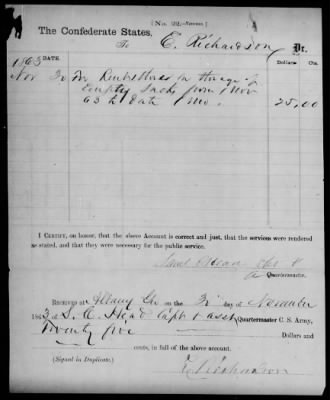 (No. 22.)
The Confederate States,
To E. Richardson Dr.
DATE. Dollars Cts.
1863
Nov 30 For Rent of House for Storage of
Empty Sacks from 1 Nov
63 to date 1 Mo. 25.00
I CERTIFY, on honor, that the above Account is correct and just, that the services were rendered
as stated, and that they were necessary for the public service.
Quartermaster.
RECEIVED at Albany Ga on the 30 day of November
1863 of S. C. Head Capt & Asst Quartermaster C. S. Army,
Twenty five Dollars and
cents, in full of the above account.
(Signed in Duplicate.) E. Richardson